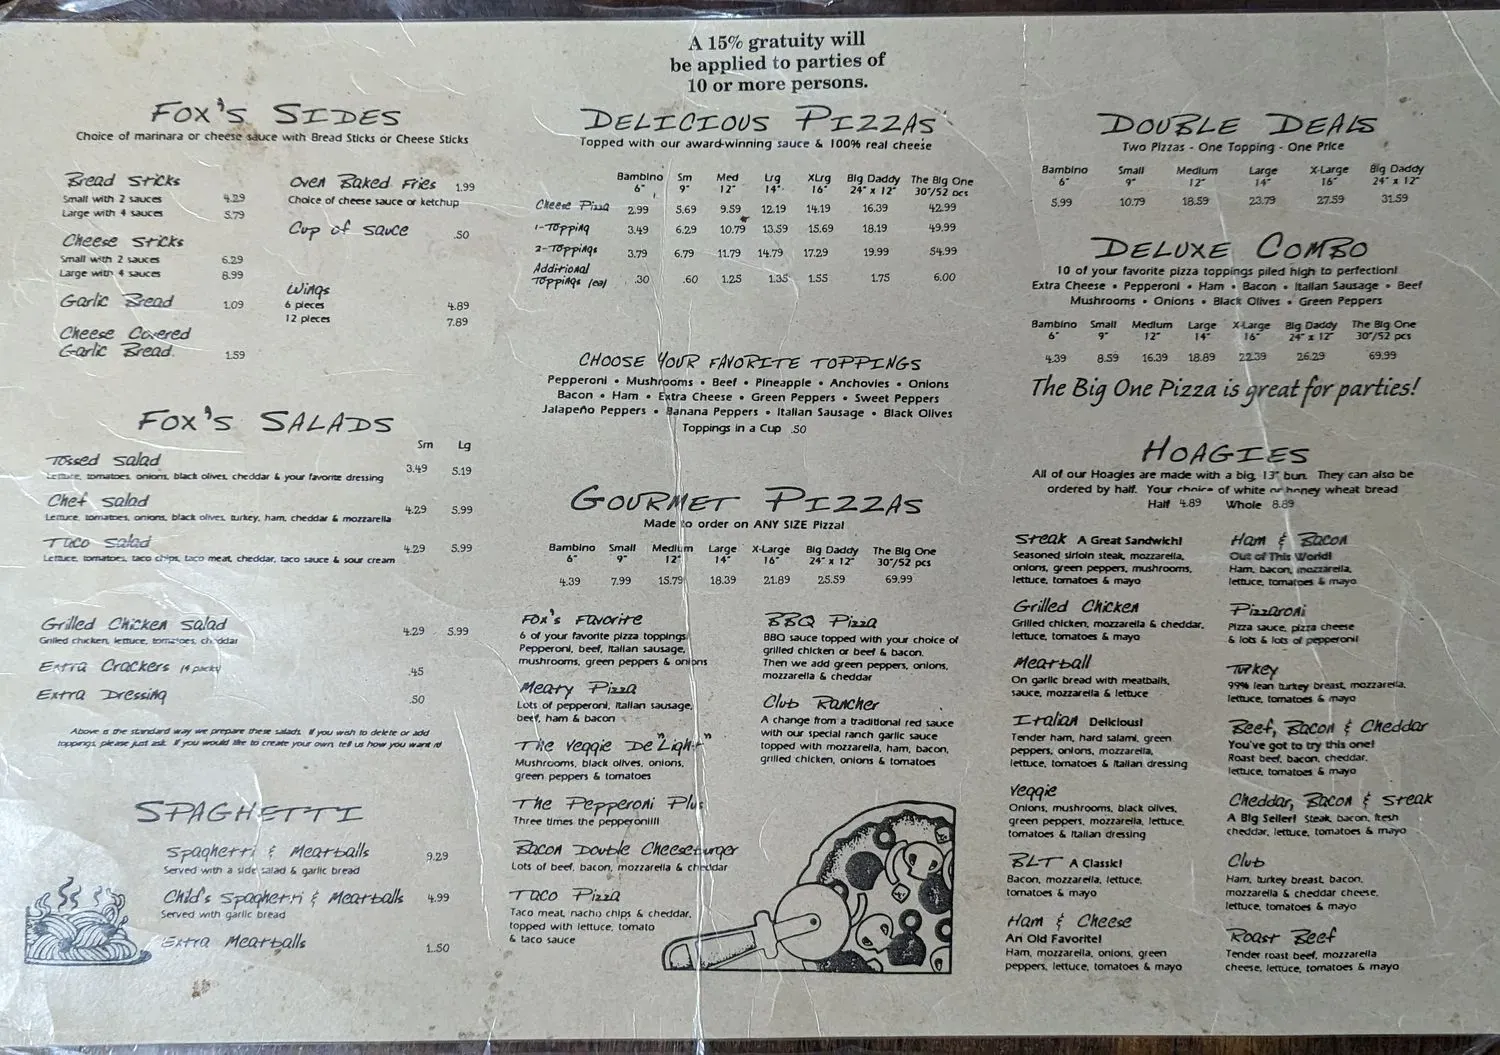 A 15% gratuity will
be applied to parties of
10 or more persons.
Fox's Sides
Choice of marinara or cheese sauce with Bread Sticks or Cheese Sticks
Bread Sticks
Small with 2 sauces 4.29
Large with 4 sauces 5.79
Cheese Sticks
Small with 2 sauces 6.29
Large with 4 sauces 8.99
Garlic Bread 1.09
Cheese Covered
Garlic Bread 1.59
Oven Baked Fries 1.99
Choice of cheese sauce or ketchup
Cup of Sauce .50
Wings
6 pieces 4.89
12 pieces 7.89
Fox's Salads
Sm Lg
Tossed Salad 3.49 5.19
Lettuce, tomatoes, onions, black olives, cheddar & your favorite dressing
Chef Salad 4.29 5.99
Lettuce, tomatoes, onions, black olives, turkey, ham, cheddar & mozzarella
Taco Salad 4.29 5.99
Lettuce, tomatoes, taco chips, taco meat, cheddar, taco sauce & sour cream
Grilled Chicken Salad 4.29 5.99
Grilled chicken, lettuce, tomatoes, cheddar
Extra Crackers (4 packs) .45
Extra Dressing .50
Above is the standard way we prepare these salads. If you wish to delete or add
toppings, please just ask. If you would like to create your own, tell us how you want it!
Spaghetti
Spaghetti & Meatballs 9.29
Served with a side salad & garlic bread
Child's Spaghetti & Meatballs 4.99
Served with garlic bread
Extra Meatballs 1.50
Delicious Pizzas
Topped with our award-winning sauce & 100% real cheese
Bambino Sm Med Lrg XLrg Big Daddy The Big One
6" 9" 12" 14" 16" 24" x 12" 30"/52 pcs
Cheese Pizza 2.99 5.69 9.59 12.19 14.19 16.39 42.99
1-Topping 3.49 6.29 10.79 13.59 15.69 18.19 49.99
2-Toppings 3.79 6.79 11.79 14.79 17.29 19.99 54.99
Additional
Toppings (ea) .30 .60 1.25 1.35 1.55 1.75 6.00
Choose Your Favorite Toppings
Pepperoni • Mushrooms • Beef • Pineapple • Anchovies • Onions
Bacon • Ham • Extra Cheese • Green Peppers • Sweet Peppers
Jalapeño Peppers • Banana Peppers • Italian Sausage • Black Olives
Toppings in a Cup .50
Gourmet Pizzas
Made to order on ANY SIZE Pizza!
Bambino Small Medium Large X-Large Big Daddy The Big One
6" 9" 12" 14" 16" 24" x 12" 30"/52 pcs
4.39 7.99 15.79 18.39 21.89 25.59 69.99
Fox's Favorite
6 of your favorite pizza toppings!
Pepperoni, beef, Italian sausage,
mushrooms, green peppers & onions
Meaty Pizza
Lots of pepperoni, Italian sausage,
beef, ham & bacon
The Veggie De"Light"
Mushrooms, black olives, onions,
green peppers & tomatoes
The Pepperoni Plus
Three times the pepperoni!!!
Bacon Double Cheeseburger
Lots of beef, bacon, mozzarella & cheddar
Taco Pizza
Taco meat, nacho chips & cheddar,
topped with lettuce, tomato
& taco sauce
BBQ Pizza
BBQ sauce topped with your choice of
grilled chicken or beef & bacon.
Then we add green peppers, onions,
mozzarella & cheddar
Club Rancher
A change from a traditional red sauce
with our special ranch garlic sauce
topped with mozzarella, ham, bacon,
grilled chicken, onions & tomatoes
Double Deals
Two Pizzas - One Topping - One Price
Bambino Small Medium Large X-Large Big Daddy
6" 9" 12" 14" 16" 24" x 12"
5.99 10.79 18.59 23.79 27.59 31.59
Deluxe Combo
10 of your favorite pizza toppings piled high to perfection!
Extra Cheese • Pepperoni • Ham • Bacon • Italian Sausage • Beef
Mushrooms • Onions • Black Olives • Green Peppers
Bambino Small Medium Large X-Large Big Daddy The Big One
6" 9" 12" 14" 16" 24" x 12" 30"/52 pcs
4.39 8.59 16.39 18.89 22.39 26.29 69.99
The Big One Pizza is great for parties!
Hoagies
All of our Hoagies are made with a big, 13" bun. They can also be
ordered by half. Your choice of white or honey wheat bread
Half 4.89 Whole 8.89
Steak A Great Sandwich!
Seasoned sirloin steak, mozzarella,
onions, green peppers, mushrooms,
lettuce, tomatoes & mayo
Grilled Chicken
Grilled chicken, mozzarella & cheddar,
lettuce, tomatoes & mayo
Meatball
On garlic bread with meatballs,
sauce, mozzarella & lettuce
Italian Delicious!
Tender ham, hard salami, green
peppers, onions, mozzarella,
lettuce, tomatoes & Italian dressing
Veggie
Onions, mushrooms, black olives,
green peppers, mozzarella, lettuce,
tomatoes & Italian dressing
BLT A Classic!
Bacon, mozzarella, lettuce,
tomatoes & mayo
Ham & Cheese
An Old Favorite!
Ham, mozzarella, onions, green
peppers, lettuce, tomatoes & mayo
Ham & Bacon
Out of This World!
Ham, bacon, mozzarella,
lettuce, tomatoes & mayo
Pizzaroni
Pizza sauce, pizza cheese
& lots & lots of pepperoni!
Turkey
99% lean turkey breast, mozzarella,
lettuce, tomatoes & mayo
Beef, Bacon & Cheddar
You've got to try this one!
Roast beef, bacon, cheddar,
lettuce, tomatoes & mayo
Cheddar, Bacon & Steak
A Big Seller! Steak, bacon, fresh
cheddar, lettuce, tomatoes & mayo
Club
Ham, turkey breast, bacon,
mozzarella & cheddar cheese,
lettuce, tomatoes & mayo
Roast Beef
Tender roast beef, mozzarella
cheese, lettuce, tomatoes & mayo